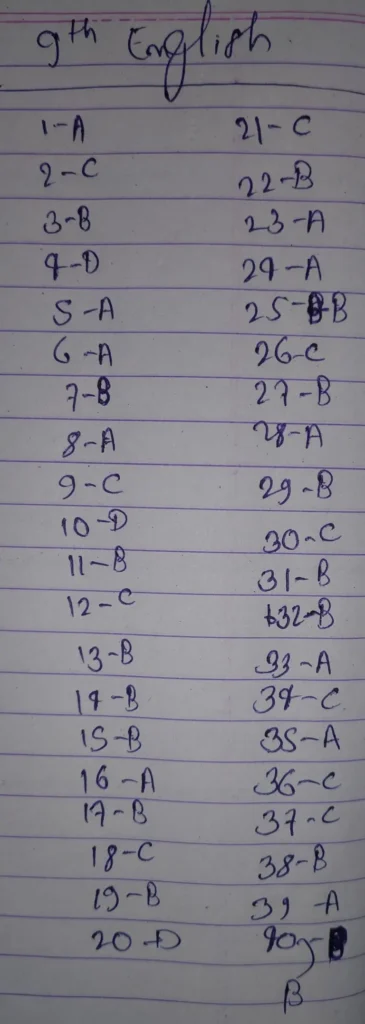 9th English
1-A
2-C
3-B
4-D
5-A
6-A
7-B
8-A
9-C
10-D
11-B
12-C
13-B
14-B
15-B
16-A
17-B
18-C
19-B
20-D
21-C
22-B
23-A
24-A
25-B
26-C
27-B
28-A
29-B
30-C
31-B
32-B
33-A
34-C
35-A
36-C
37-C
38-B
39-A
40-
B